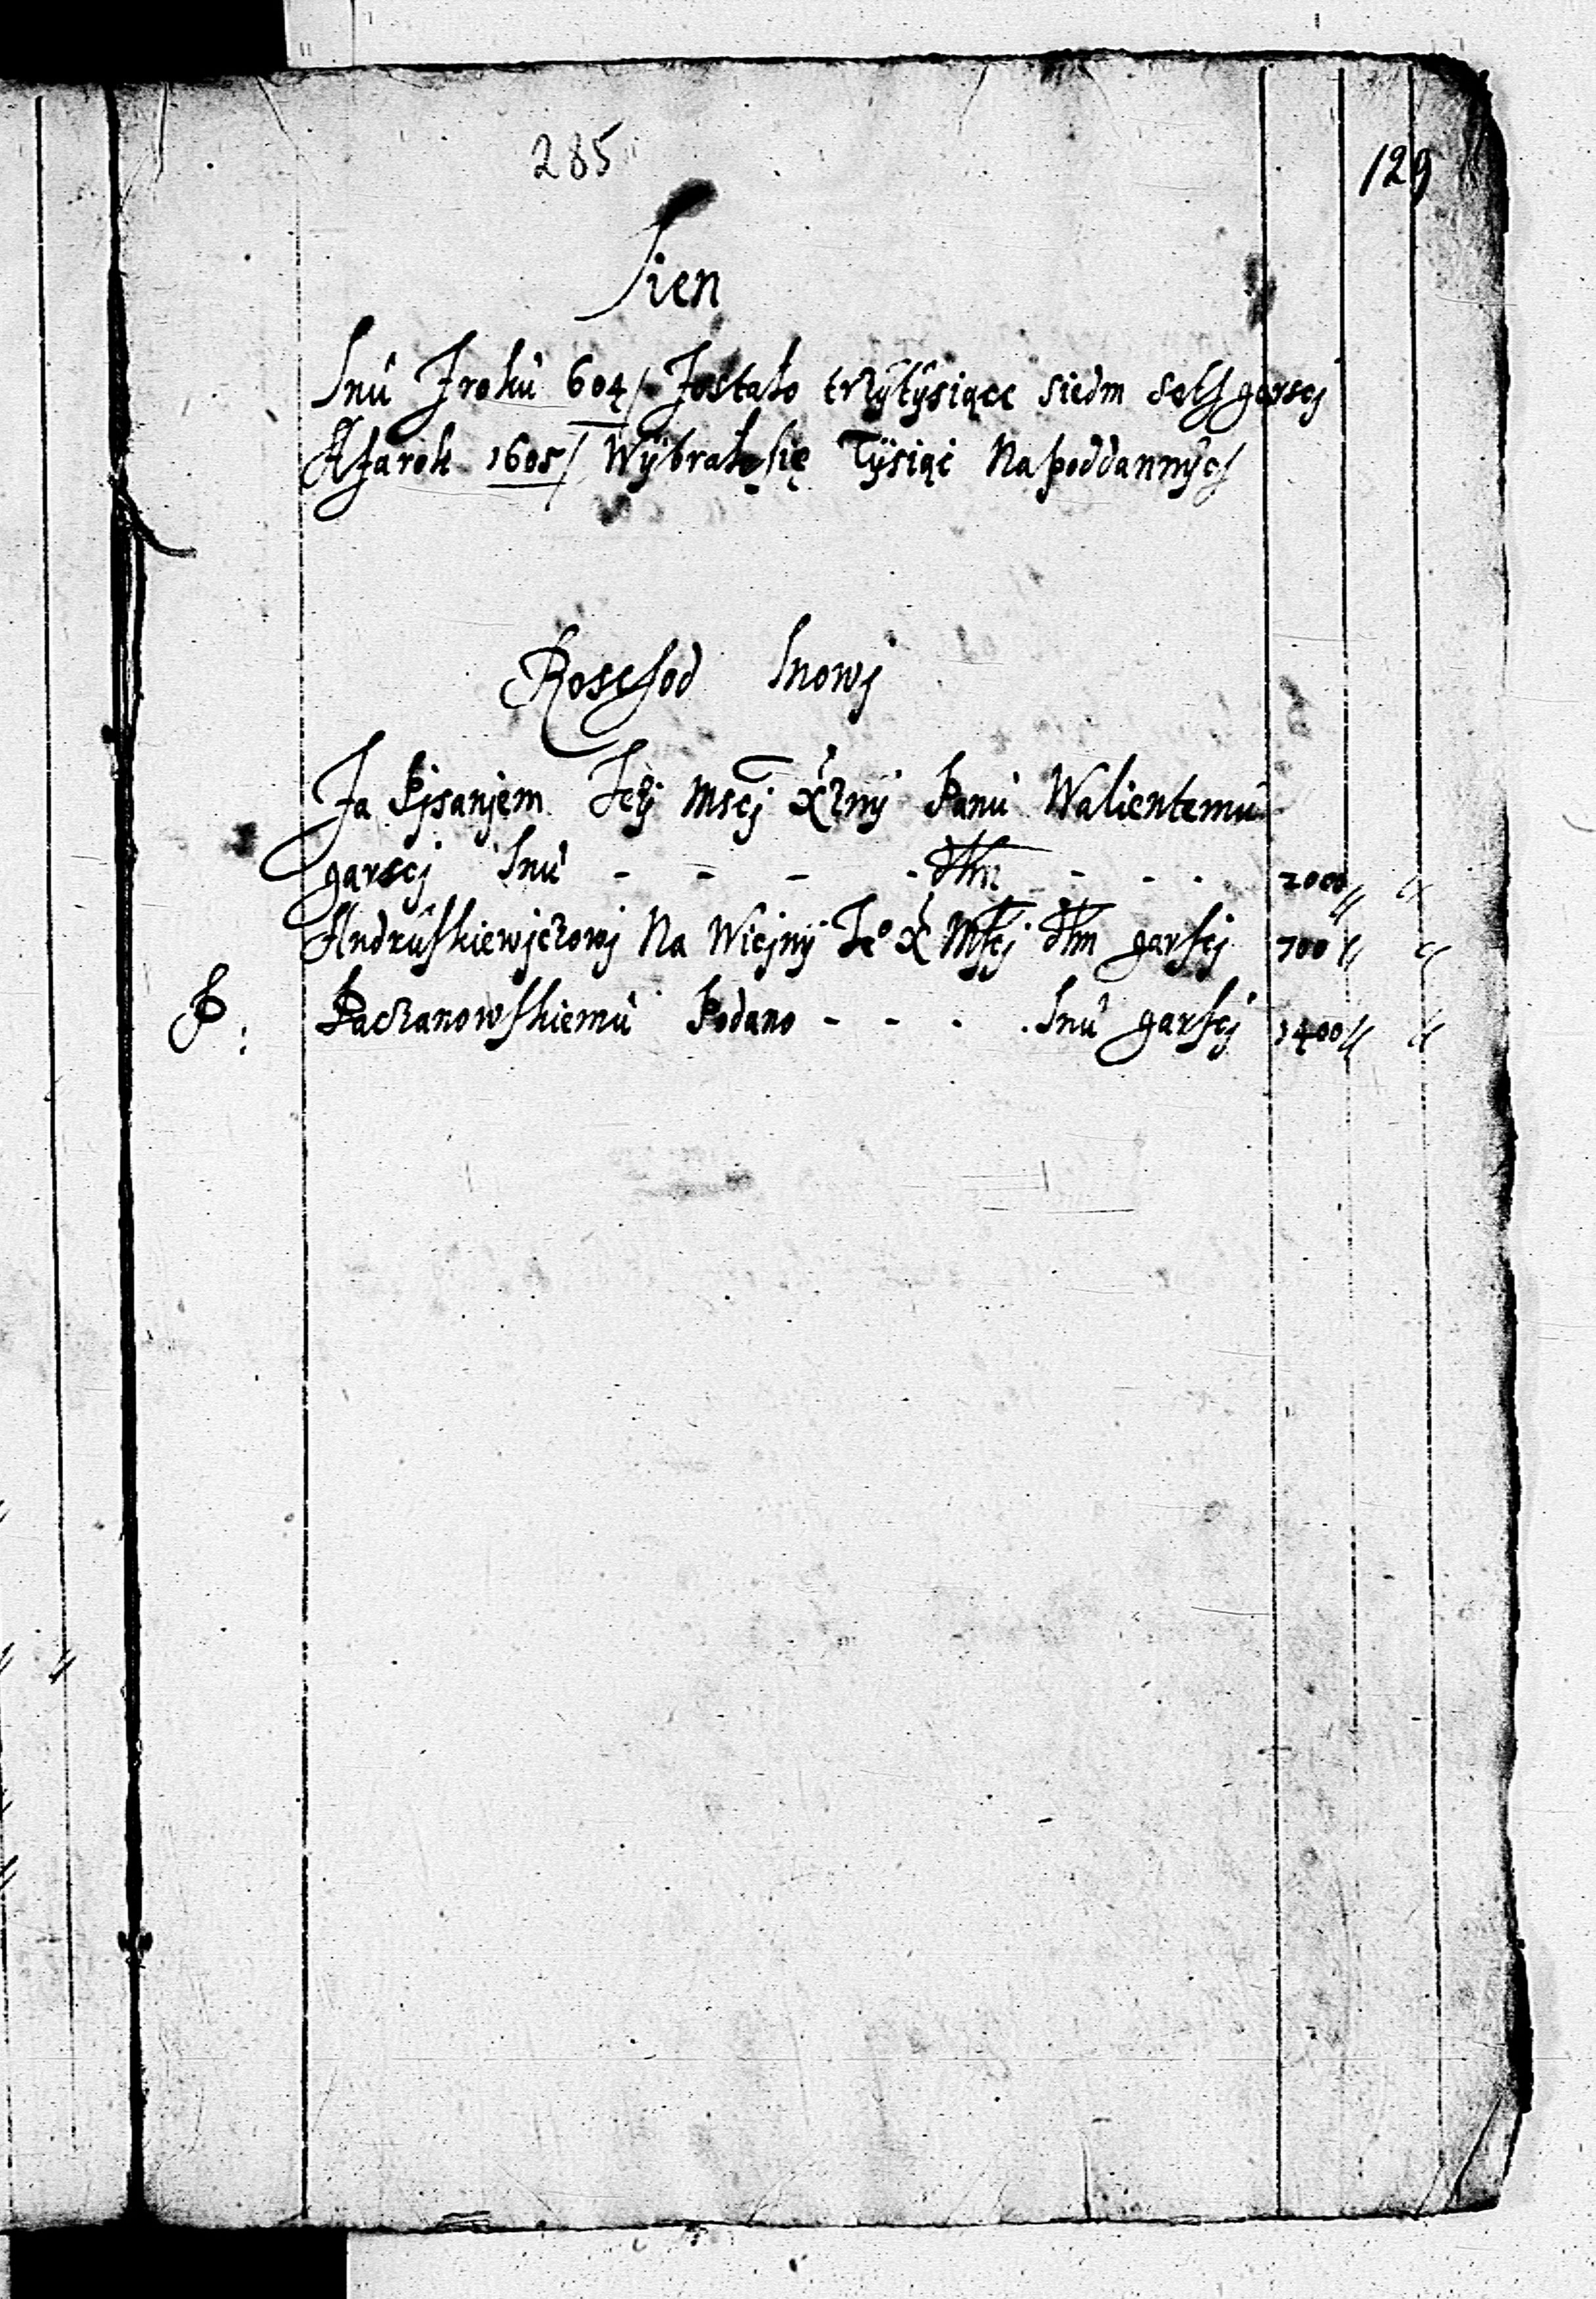 285
129
Lien
Lnu Zroku 604/ Zostało trzÿtÿsiące siedm seth garscj
A Zarok 1605/ Wÿbrało się Tÿsiąc Na poddannÿch
Roschod Lnowj
Za Pjsanjem Jeÿ Mscj Xznÿ Panu Walientemu
garscj Lnu - - - - - - - 2000
Andruskiewjczowj Na Wicjnÿ Je° X Mscj garscj 700
P: Paczanowskiemu Podano - - - . Lnu garscj 1400